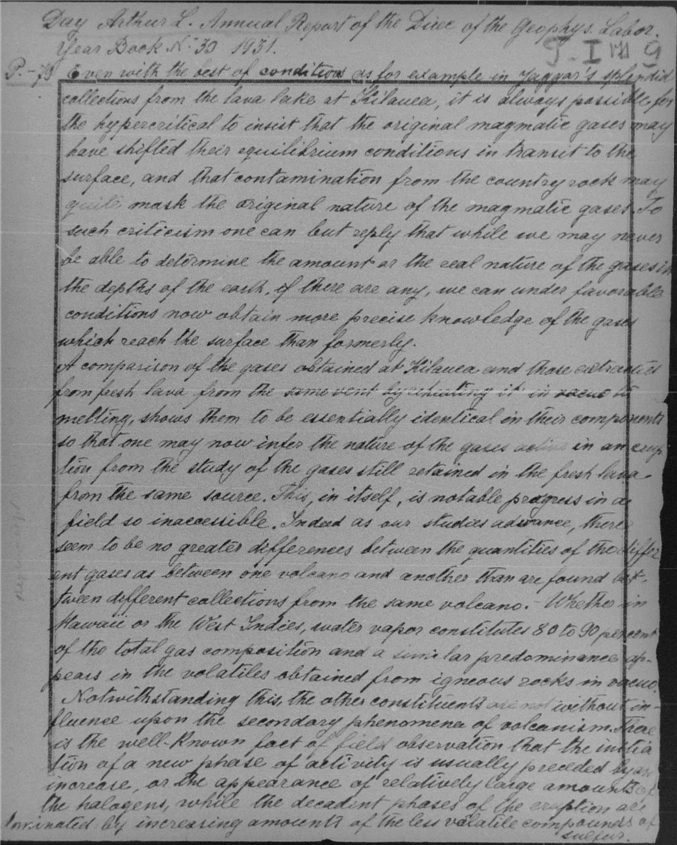 Day Arthur L. Annual Report of the Direc of the Geophys. Labor.
Year Book No 30 1931.
P.-75 Even with the best of conditions as for example in Jaggar's splendid
collections from the lava lake at Kilauea, it is always possible for
the hypercritical to insist that the original magmatic gases may
have shifted their equilibrium conditions in transit to the
surface, and that contamination from the country rock may
quite mask the original nature of the magmatic gases. To
such criticism one can but reply that while we may never
be able to determine the amount or the real nature of the gases in
the depths of the earth, if there are any, we can under favorable
conditions now obtain more precise knowledge of the gases
which reach the surface than formerly.
A comparison of the gases obtained at Kilauea and those extracted
from fresh lava from the same vent by reheating it in vacuo to
melting, shows them to be essentially identical in their components
so that one may now infer the nature of the gases active in an erup-
tion from the study of the gases still retained in the fresh lava
from the same source. This, in itself, is notable progress in a
field so inaccessible. Indeed as our studies advance, there
seem to be no greater differences between the quantities of the differ
ent gases as between one volcano and another than are found bet-
tween different collections from the same volcano. - Whether in
Hawaii or the West Indies, water vapor constitutes 80 to 90 percent
of the total gas composition and a similar predominance ap-
pears in the volatiles obtained from igneous rocks in vacuo.
Notwithstanding this, the other constituents are not without in-
fluence upon the secondary phenomena of volcanism. There
is the well-known fact of field observation that the initia
tion of a new phase of activity is usually preceded by an
increase, or the appearance of relatively large amounts of
the halogens, while the decadent phases of the eruption are
by increasing amounts of the less volatile compounds of
sulfur.